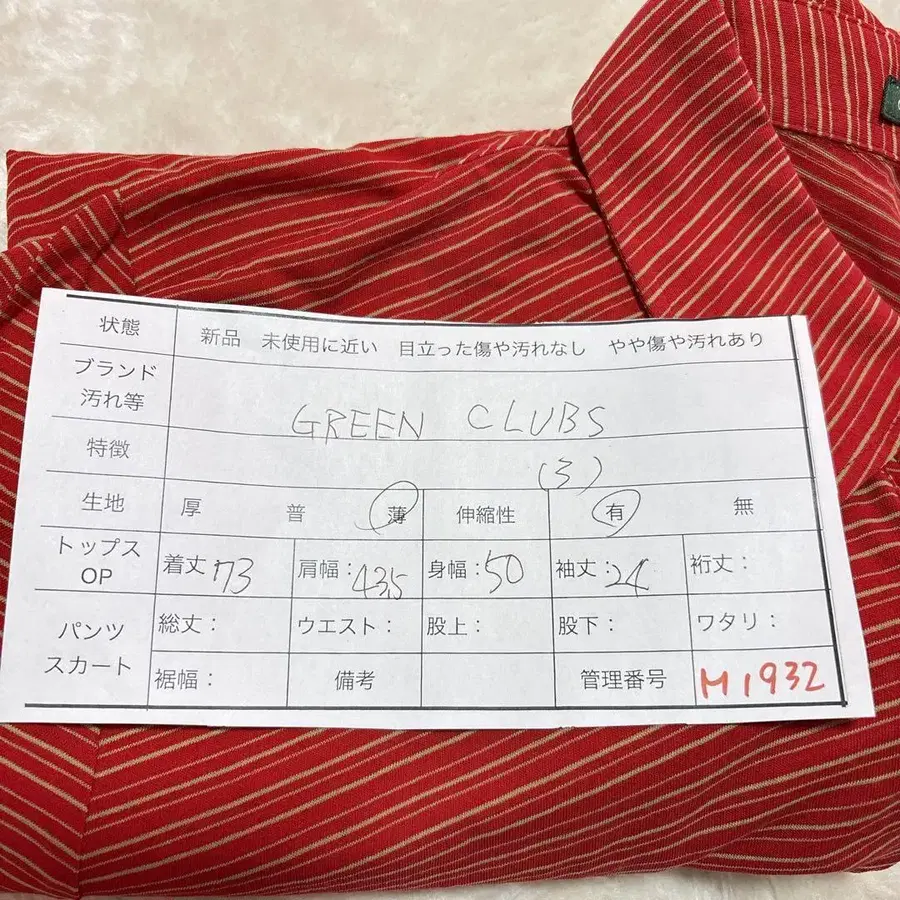 状態 新品 未使用に近い 目立った傷や汚れなし やや傷や汚れあり
ブランド
汚れ等
GREEN CLUBS
特徴 (3)
生地 厚 普 薄 伸縮性 有 無
トップス
OP
着丈 73 肩幅: 43.5 身幅: 50 袖丈: 24 裄丈:
パンツ
スカート
総丈: ウエスト: 股上: 股下: ワタリ:
裾幅: 備考 管理番号 M1932